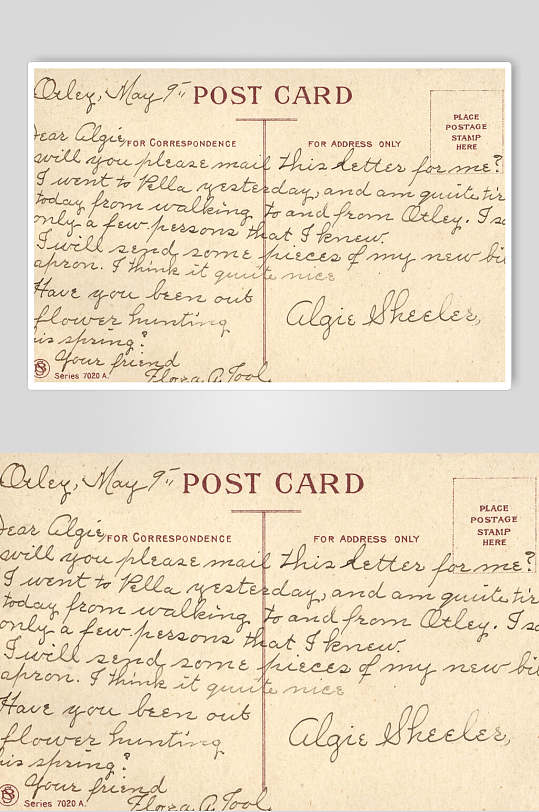 Otley, May 9"
POST CARD
PLACE
POSTAGE
STAMP
HERE
Dear Algie,
FOR CORRESPONDENCE
FOR ADDRESS ONLY
will you please mail this letter for me?
I went to Pella yesterday, and am quite tir
today from walking to and from Otley. I sa
only a few persons that I knew.
I will send some pieces of my new bi
apron. I think it quite nice
Have you been out
flower hunting
is spring?
Algie Sheeler,
Your friend
Flora A. Tool
Series 7020 A.
Otley, May 9"
POST CARD
PLACE
POSTAGE
STAMP
HERE
Dear Algie,
FOR CORRESPONDENCE
FOR ADDRESS ONLY
will you please mail this letter for me?
I went to Pella yesterday, and am quite tir
today from walking to and from Otley. I sa
only a few persons that I knew.
I will send some pieces of my new bi
apron. I think it quite nice
Have you been out
flower hunting
is spring?
Algie Sheeler,
Your friend
Flora A. Tool
Series 7020 A.